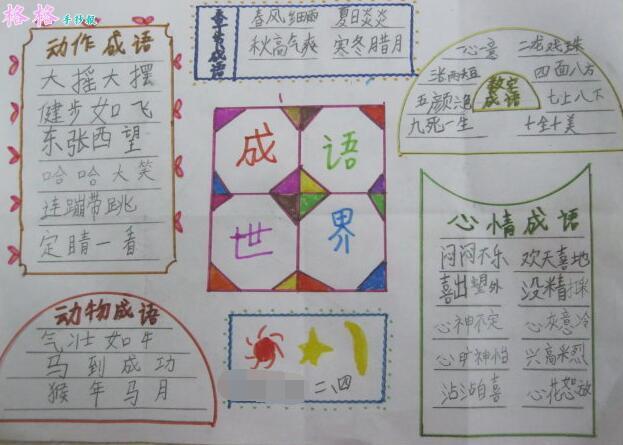 格格手抄报
动作成语
大摇大摆
健步如飞
东张西望
哈哈大笑
连蹦带跳
定睛一看
春风细雨 夏日炎炎
秋高气爽 寒冬腊月
成语
一心一意 二龙戏珠
四面八方
数字成语
七上八下
九死一生 十全十美
成 语
世 界
心情成语
闷闷不乐 欢天喜地
喜出望外
心神不定 心灰意冷
心旷神怡 兴高采烈
沾沾自喜 心花怒放
动物成语
气壮如牛
马到成功
猴年马月
二、四